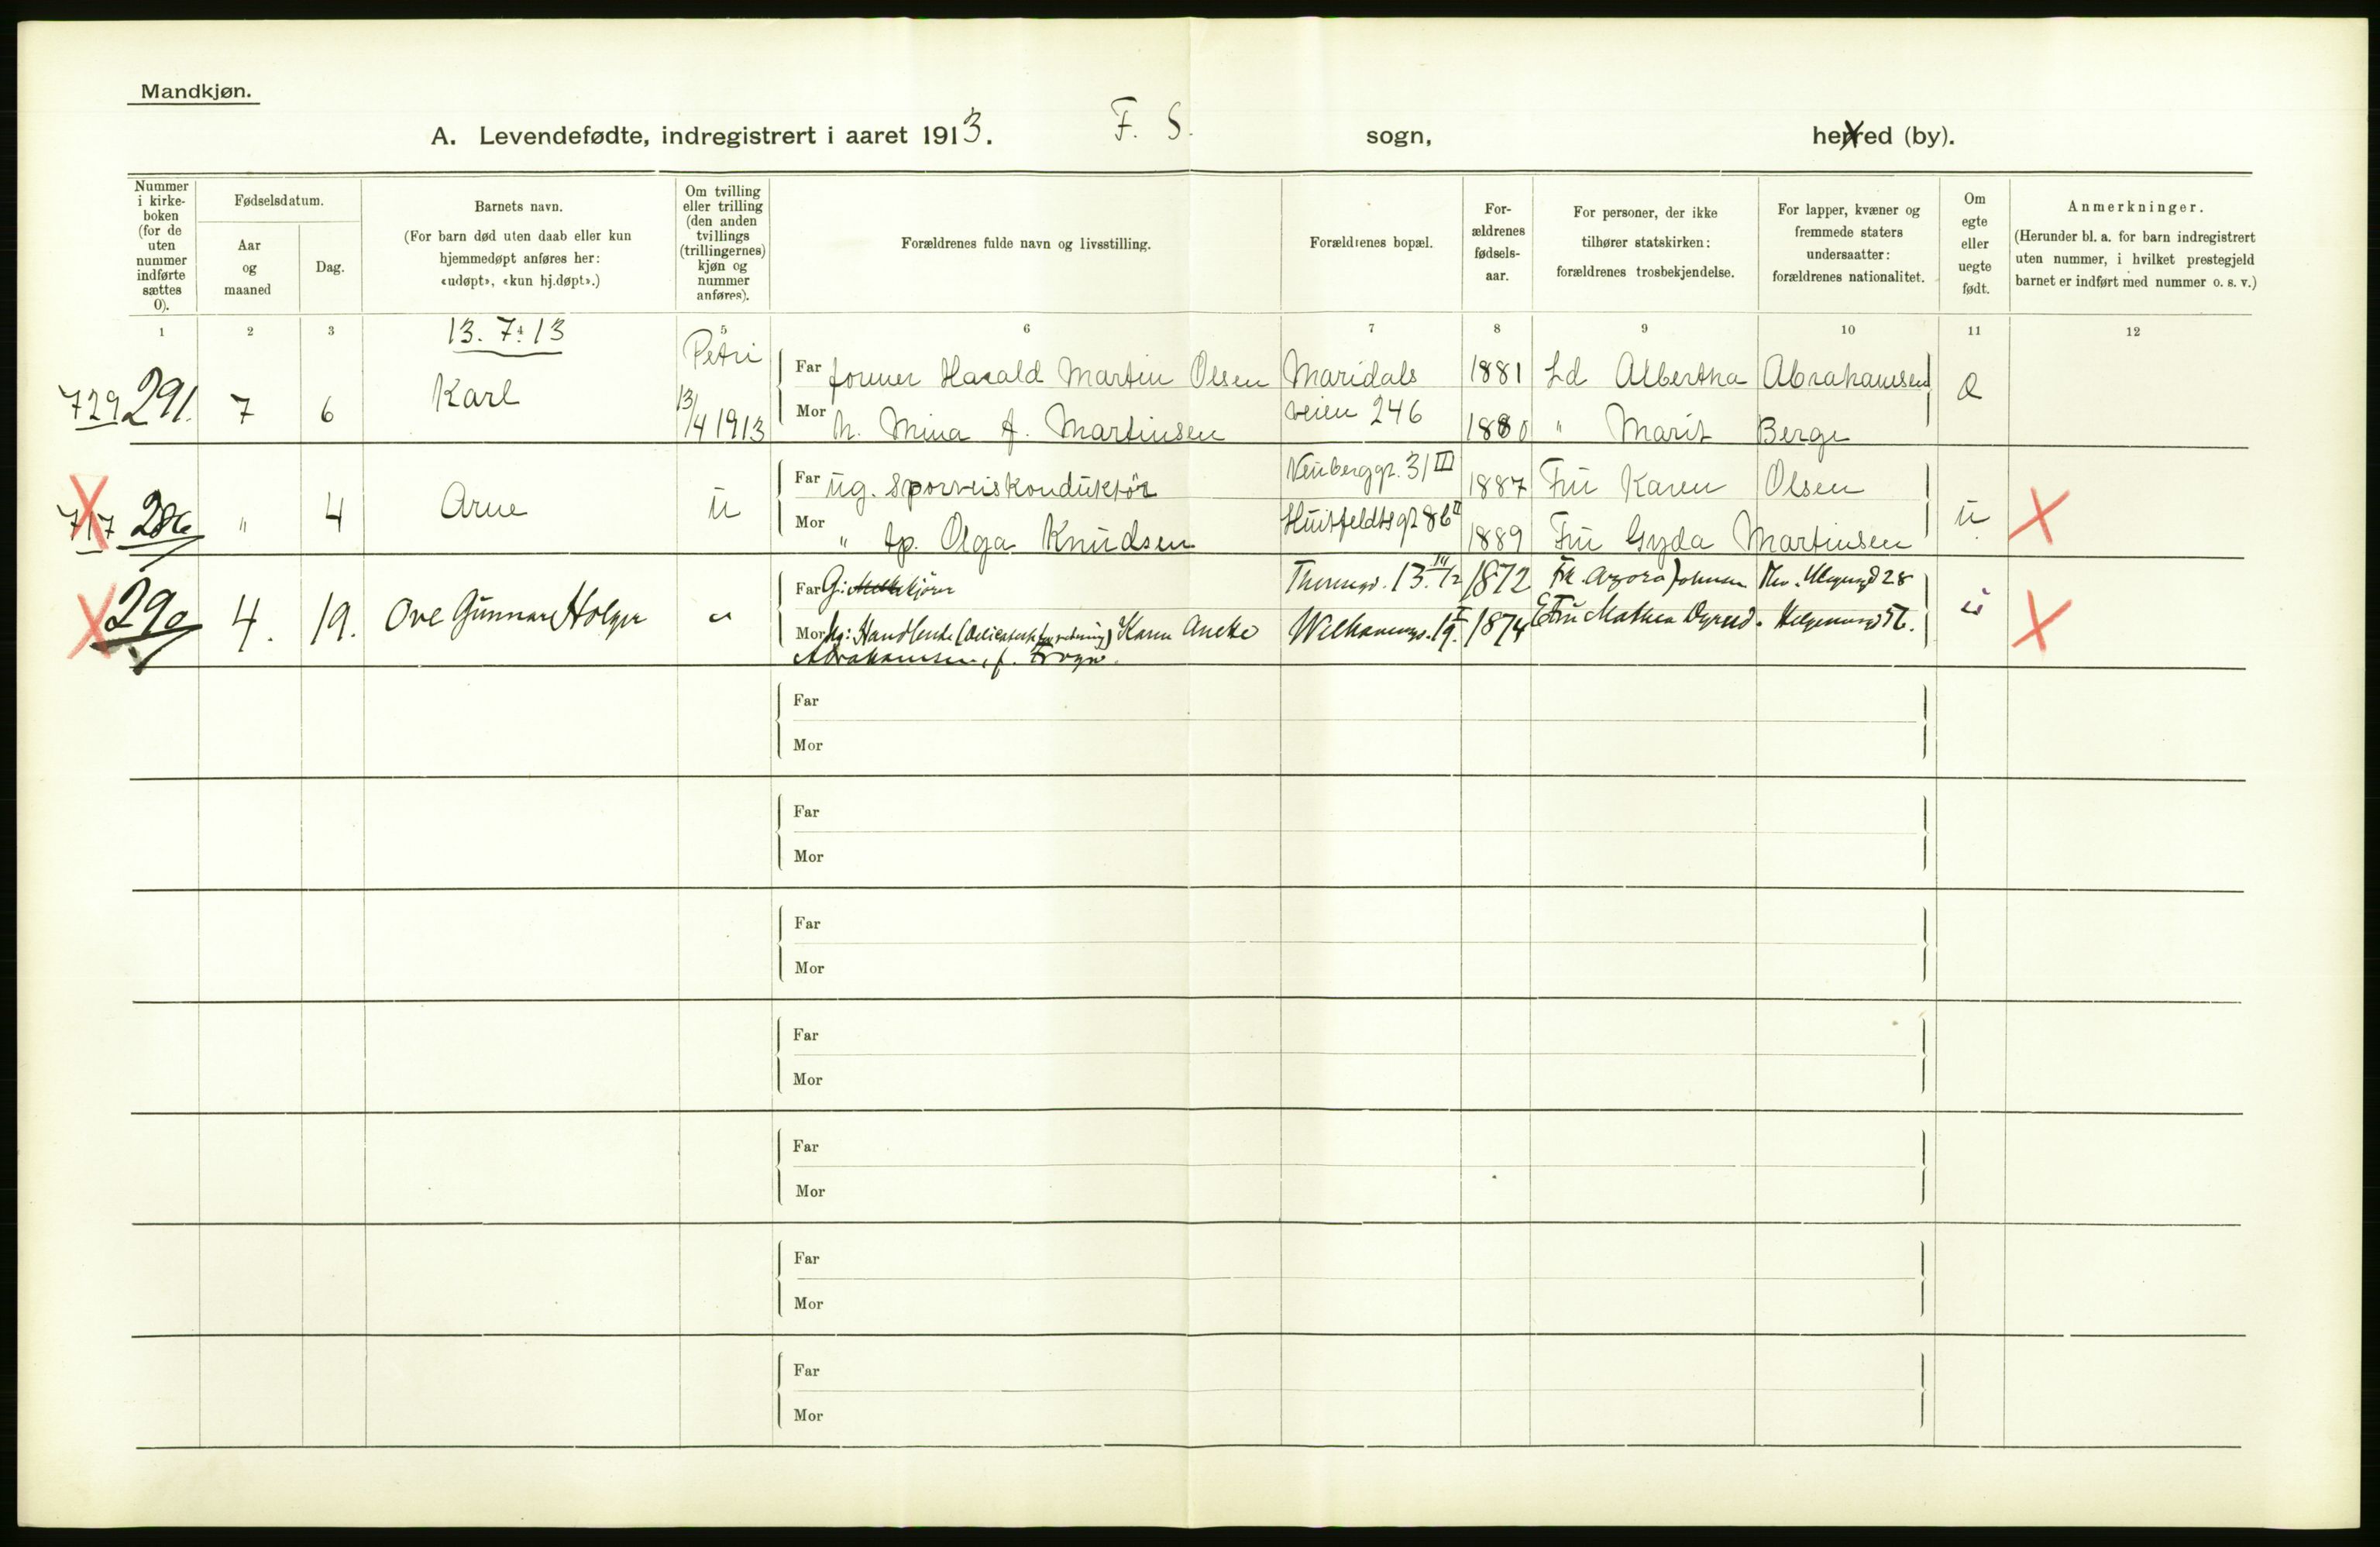 Mandkjøn.
A. Levendefødte, indregistrert i aaret 1913. F. S. sogn, herred (by).
Nummer i kirke-boken (for de uten nummer indførte sættes 0).
Fødselsdatum.
Aar og maaned
Dag.
Barnets navn.
(For barn død uten daab eller kun hjemmedøpt anføres her: «udøpt», «kun hj.døpt».)
Om tvilling eller trilling (den anden tvillings (trillingernes) kjøn og nummer anføres).
Forældrenes fulde navn og livsstilling.
Forældrenes bopæl.
For-ældrenes fødsels-aar.
For personer, der ikke tilhører statskirken: forældrenes trosbekjendelse.
For lapper, kvæner og fremmede staters undersaatter: forældrenes nationalitet.
Om egte eller uegte født.
Anmerkninger.
(Herunder bl. a. for barn indregistrert uten nummer, i hvilket prestegjeld barnet er indført med nummer o. s. v.)
1 2 3 4 5 6 7 8 9 10 11 12
13. 7. 13
Petri
729 291. 7 6 Karl 13/4 1913
Far former Harald Martin Olsen Maridals 1881 Ld Albertha Abrahamsen
Mor h. Mina A. Martinsen veien 246 1880 " Marit Berge
717 286 " 4 Arne u
Far ug. Sporveiskonduktør Neuberggt. 31 III 1887 Fru Karen Olsen u
Mor " tp. Olga Knudsen Huitfeldtsgt 8b II 1889 Fru Gyda Martinsen
290 4. 19. Ove Gunnar Holger
Far G: 13. 1872 Johnsen 28 u
Mor Ug: Handlende Karen 19. 1874 Fru Mathea
Abrahamsen, f.
Far
Mor
Far
Mor
Far
Mor
Far
Mor
Far
Mor
Far
Mor
Far
Mor